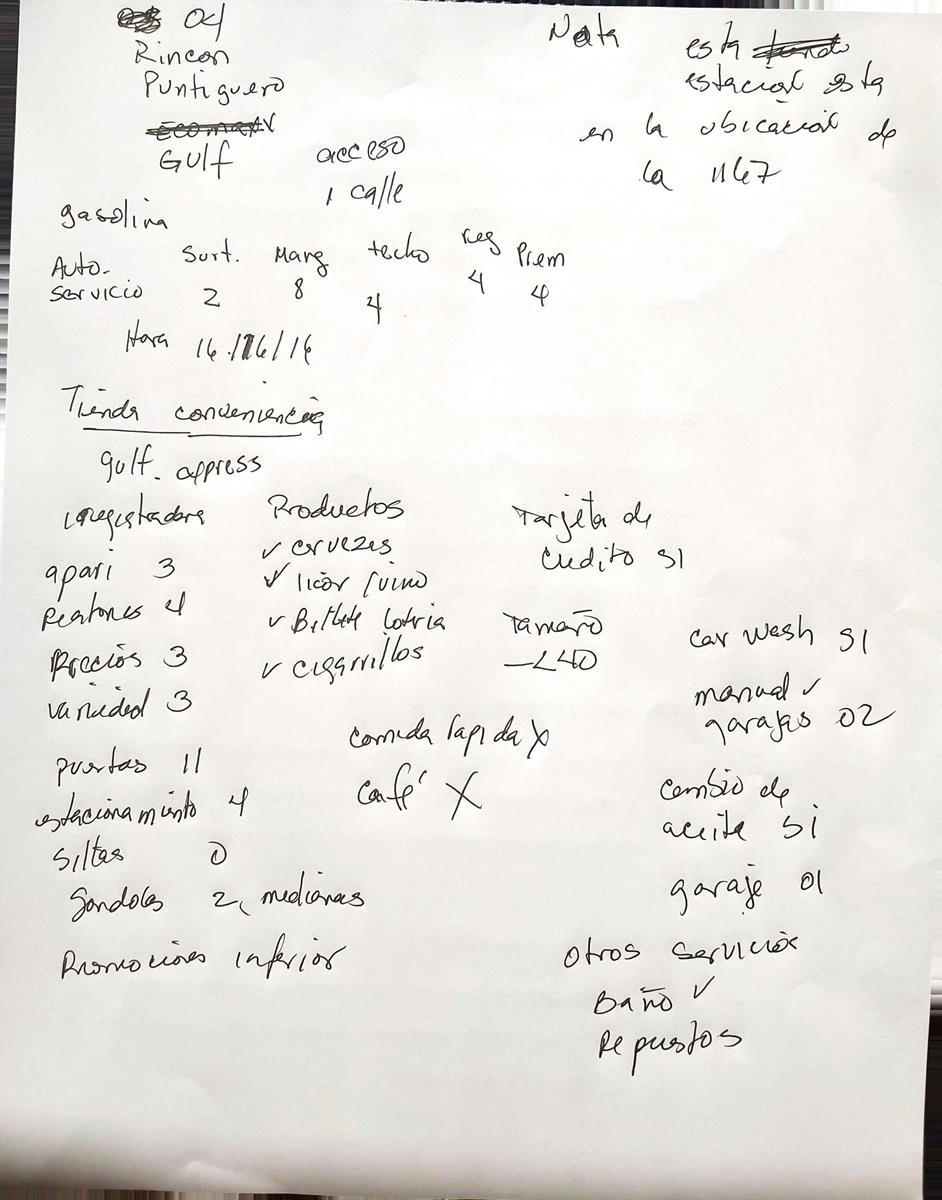 04
Rincon
Puntiguero
Gulf
acceso
1 calle
Nota esta
estación esta
en la ubicación de
la 1167
gasolina
Auto-
servicio
Surt. Mang techo Reg Prem
2 8 4 4 4
Hora 16/16/16
Tienda conveniencia
gulf. express
1 registradora
apari 3
Peatones 4
Precios 3
variedad 3
puertas 11
estacionamiento 4
Sillas 0
Gondolas 2 medianas
Promociones inferior
Productos
✓ cervezes
✓ licor / vino
✓ Billete lotria
✓ cigarrillos
comida rapida X
café X
Tarjeta de
credito SI
Tamaño
-<40
car wash SI
manual ✓
garajes 02
cambio de
aceite si
garaje 01
otros servicios
Baño ✓
Repuestos